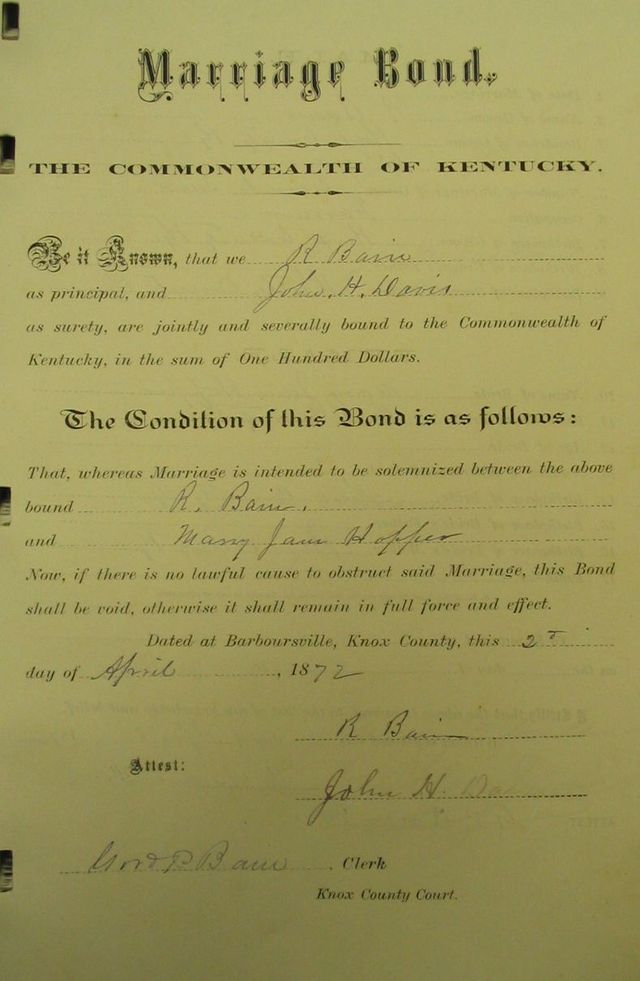 Marriage Bond.
THE COMMONWEALTH OF KENTUCKY.
Be it Known, that we R Bain
as principal, and John. H. Davis
as surety, are jointly and severally bound to the Commonwealth of
Kentucky, in the sum of One Hundred Dollars.
The Condition of this Bond is as follows:
That, whereas Marriage is intended to be solemnized between the above
bound R. Bain.
and Mary Jane Hopper
Now, if there is no lawful cause to obstruct said Marriage, this Bond
shall be void, otherwise it shall remain in full force and effect.
Dated at Barboursville, Knox County, this 2
day of April, 1872
R Bain
Attest:
John H.
Bain Clerk
Knox County Court.